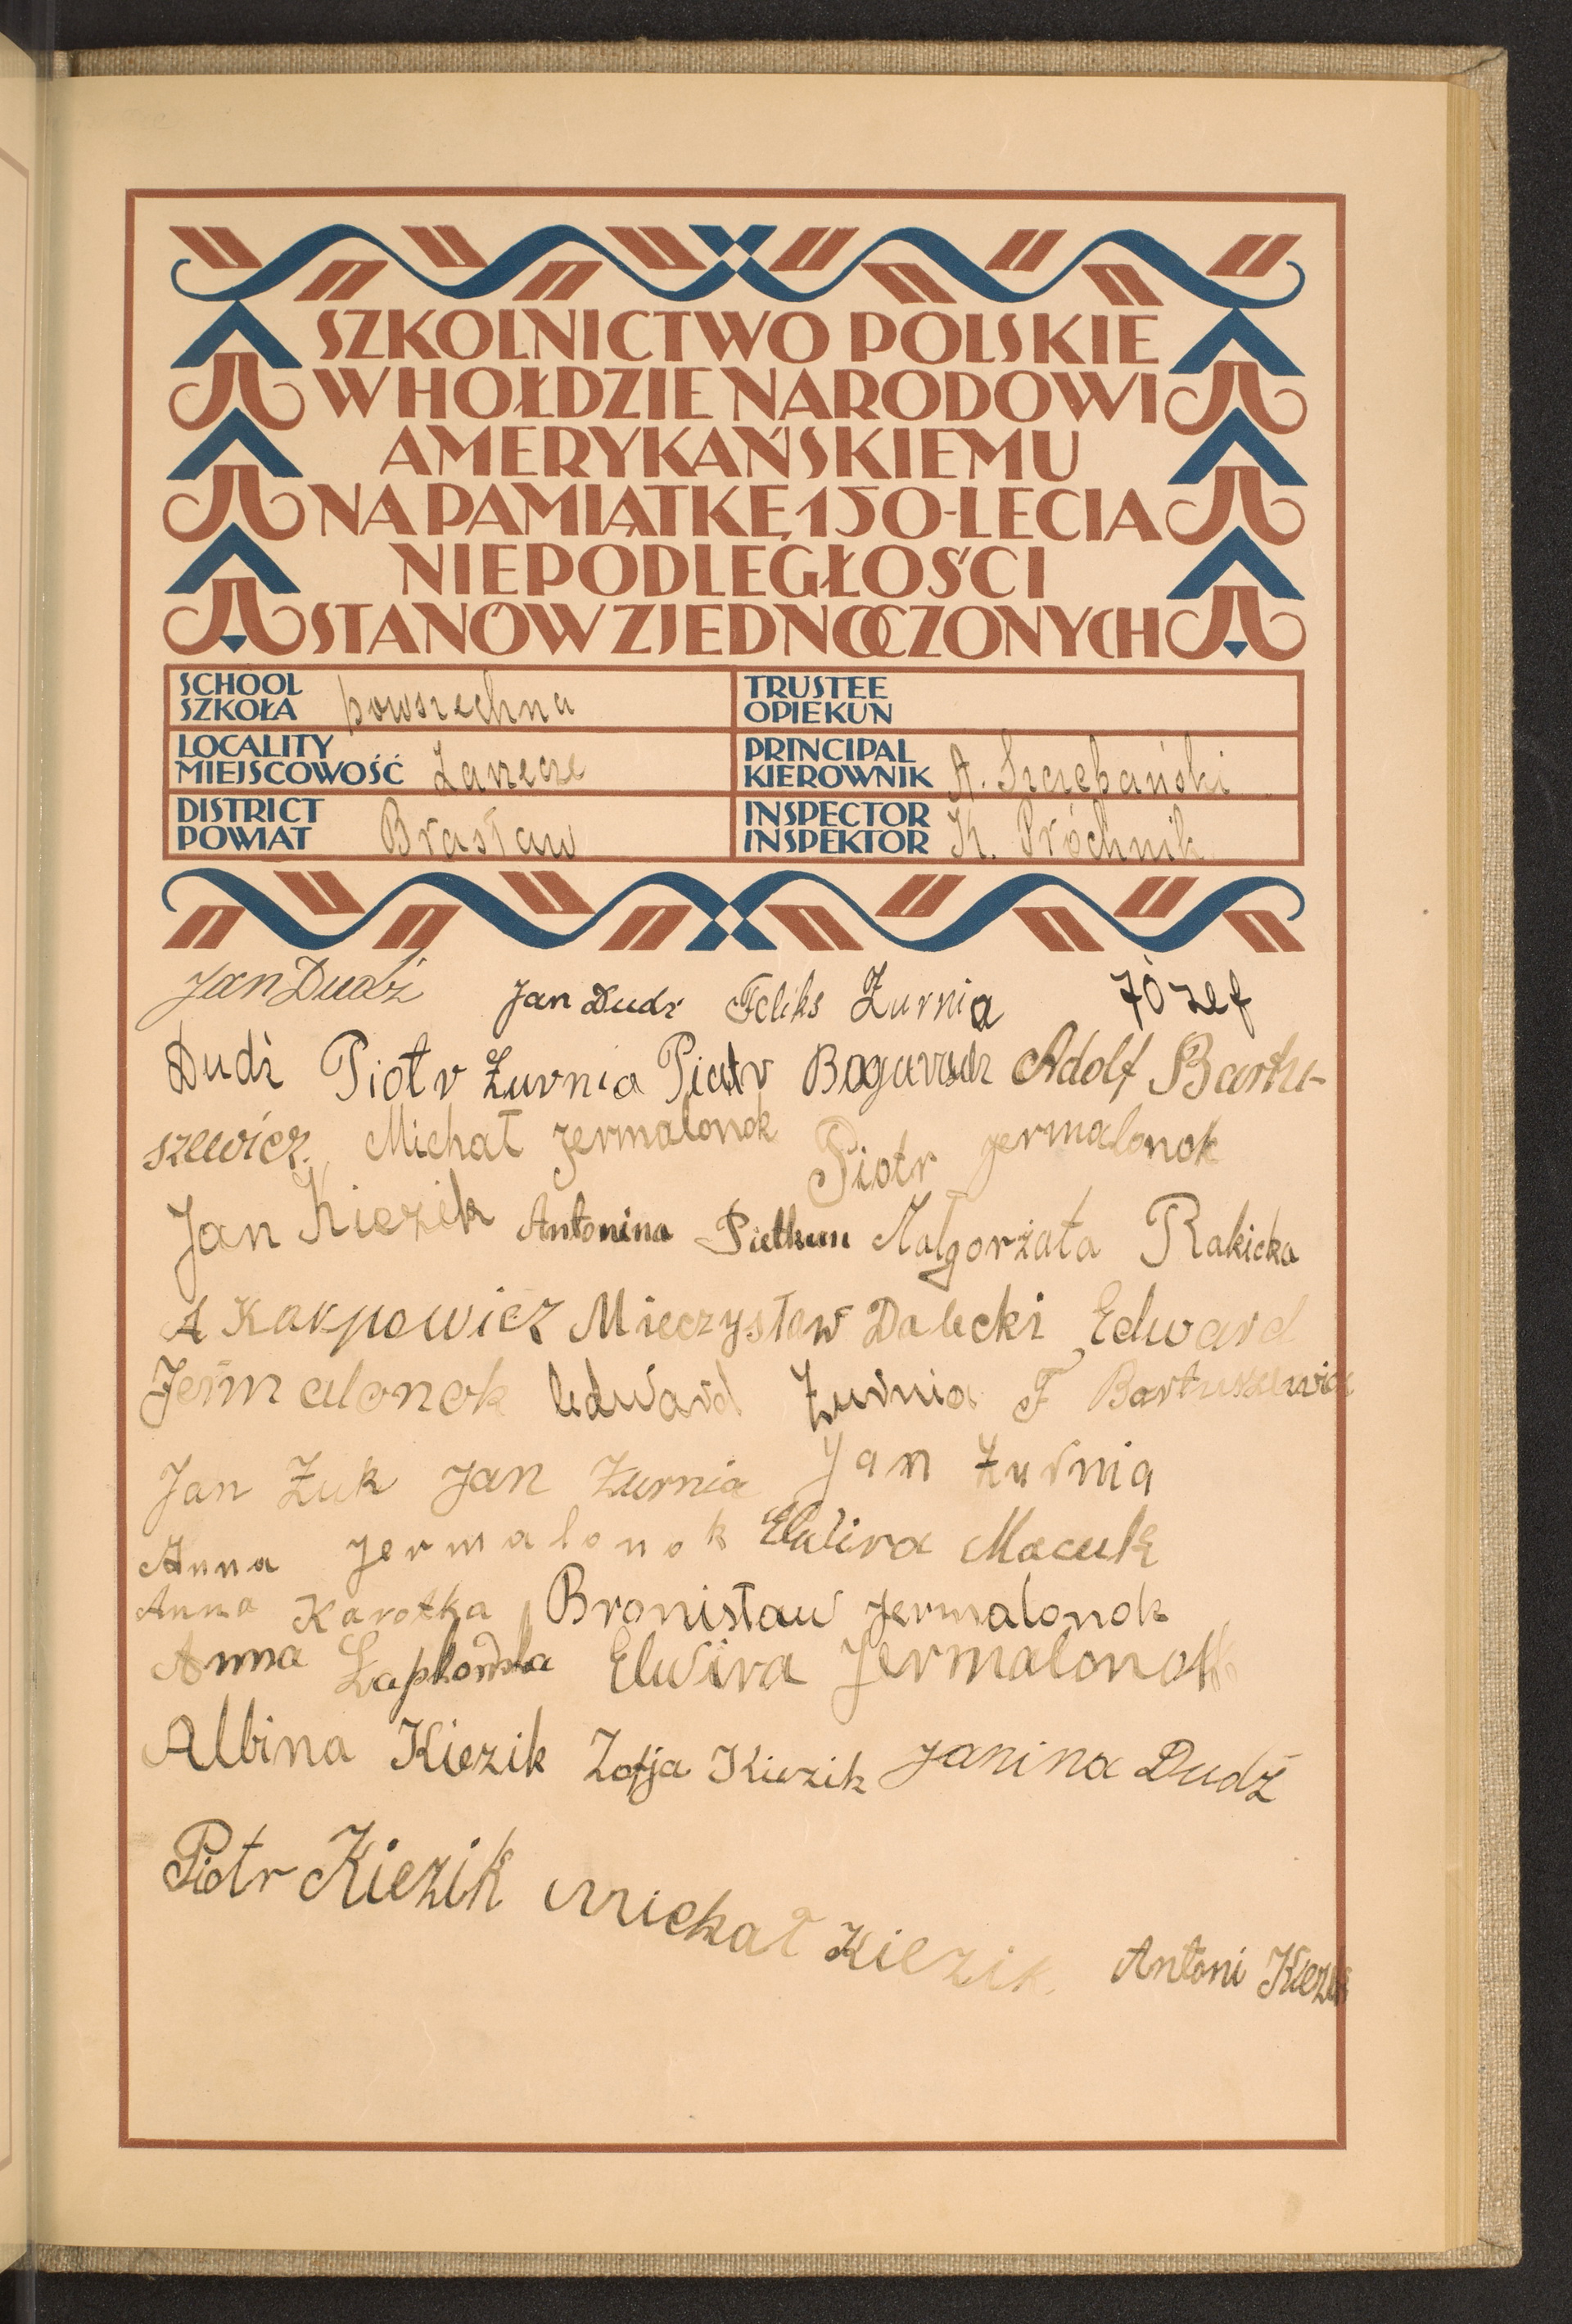 SZKOLNICTWO POLSKIE
W HOŁDZIE NARODOWI
AMERYKAŃSKIEMU
NA PAMIĄTKĘ 150-LECIA
NIEPODLEGŁOŚCI
STANÓW ZJEDNOCZONYCH
SCHOOL
SZKOŁA powszechna
TRUSTEE
OPIEKUN
LOCALITY
MIEJSCOWOŚĆ Zarzecze
PRINCIPAL
KIEROWNIK A. Szczepański
DISTRICT
POWIAT Brasław
INSPECTOR
INSPEKTOR K. Próchnik
Jan Dudź Jan Dudź Feliks Żurnia Józef
Dudź Piotr Żurnia Piotr Adolf Bartu-
szewicz. Michał Jermalonok Piotr Jermalonok
Jan Kiezik Antonina Pietkun Małgorzata Rakicka
A Karpowicz Mieczysław Dalecki Edward
Jermalonok Edward Żurnia F Bartuszewicz
Jan Żuk Jan Żurnia Jan Żurnia
Anna Jermalonok Elwira Macuk
Anna Karotka Bronisław Jermalonok
Anna Elwira Jermalonok
Albina Kiezik Zofja Kiezik Janina Dudź
Piotr Kiezik Michał Kiezik. Antoni Kiezik